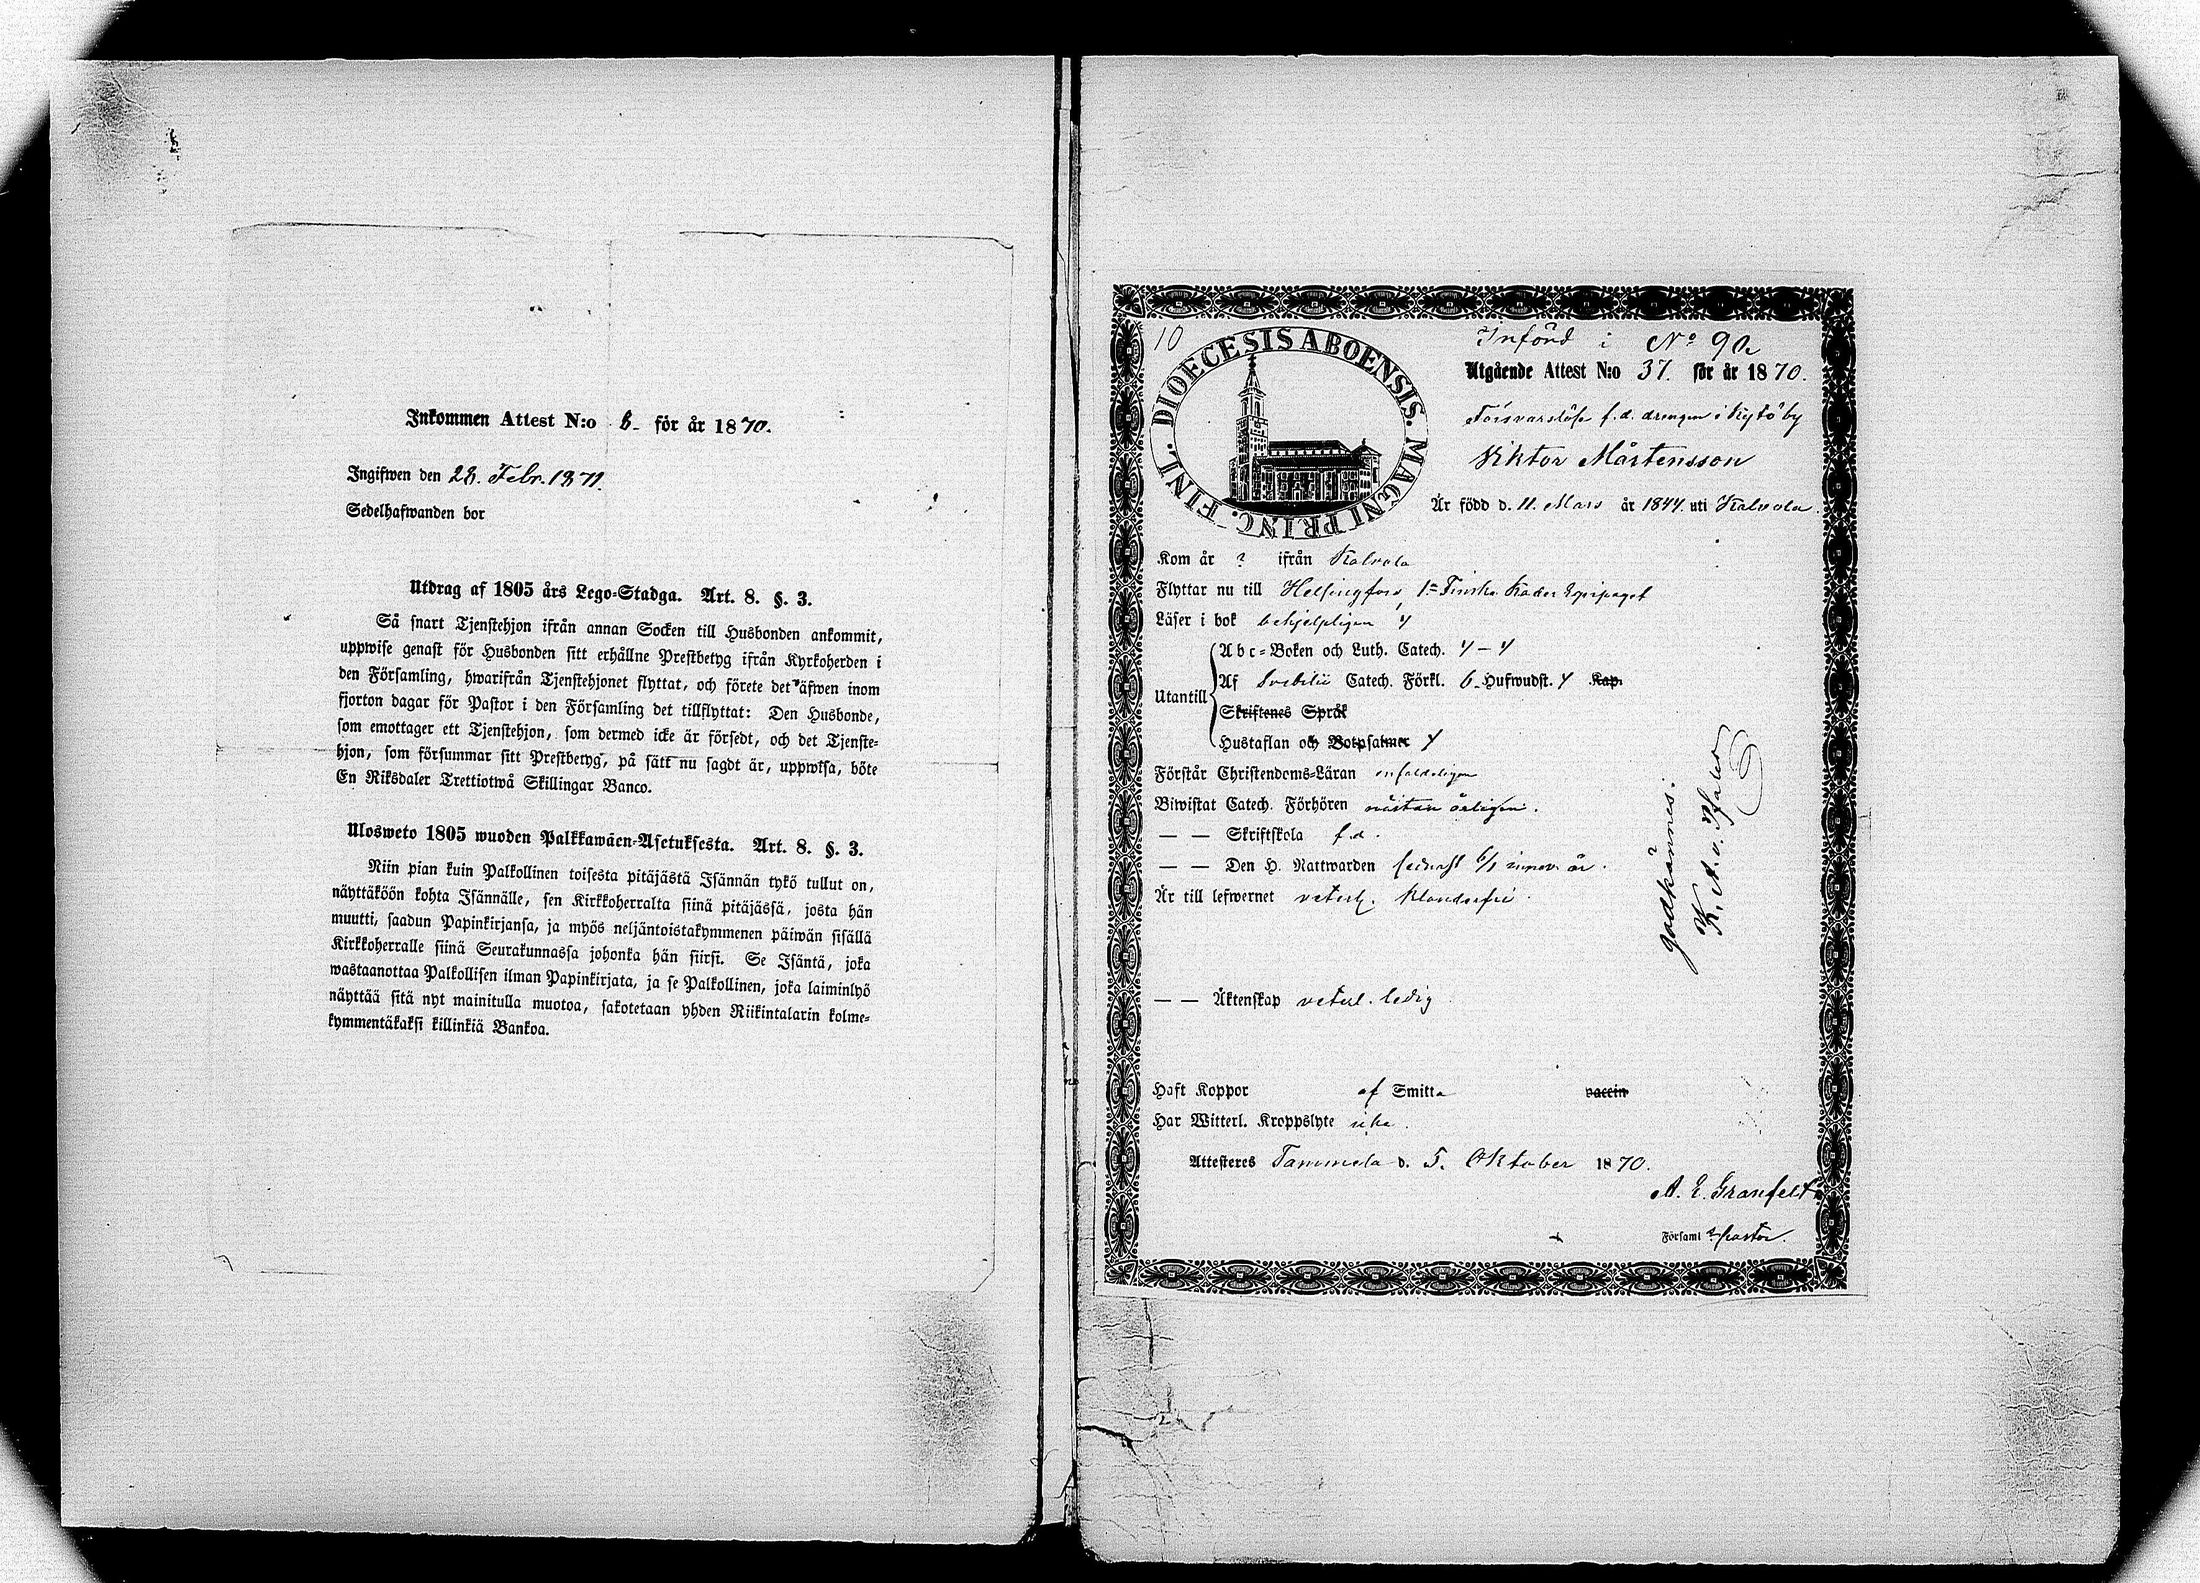 Inkommen Attest N:o 6- för år 1870.
Ingifwen den 28. Febr. 1871.
Sedelhafwanden bor
Utdrag af 1805 års Lego-Stadga. Art. 8. §. 3.
Så snart Tjenstehjon ifrån annan Socken till Husbonden ankommit,
uppwise genast för Husbonden sitt erhållne Prestbetyg ifrån Kyrkoherden i
den Församling, hwarifrån Tjenstehjonet flyttat, och förete det äfwen inom
fjorton dagar för Pastor i den Församling det tillflyttat: Den Husbonde,
som emottager ett Tjenstehjon, som dermed icke är försedt, och det Tjenste-
hjon, som försummar sitt Prestbetyg, på sätt nu sagdt är, uppwisa, böte
En Riksdaler Trettiotwå Skillingar Banco.
Ulosweto 1805 wuoden Palkkawäen-Asetuksesta. Art. 8. §. 3.
Niin pian kuin Palkollinen toisesta pitäjästä Isännän tykö tullut on,
näyttäköön kohta Isännälle, sen Kirkkoherralta siinä pitäjässä, josta hän
muutti, saadun Papinkirjansa, ja myös neljäntoistakymmenen päiwän sisällä
Kirkkoherralle siinä Seurakunnassa johonka hän siirsi. Se Isäntä, joka
wastaanottaa Palkollisen ilman Papinkirjata, ja se Palkollinen, joka laiminlyö
näyttää sitä nyt mainitulla muotoa, sakotetaan yhden Riikintalarin kolme-
kymmentäkaksi killinkiä Bankoa.
10
DIOECESIS ABOENSIS. MAGNI PRINC. FINL.
Införd i No 90.
Utgående Attest N:o 37. för år 1870.
Försvarslöse f.d. drengen i Kytö by
Viktor Mårtensson
Är född d. 11. Mars år 1844. uti Kalvola.
Kom år ? ifrån Kalvola
Flyttar nu till Helsingfors, 1= Finska Kader
Läser i bok behjelpligen 4
Abc-Boken och Luth. Catech. 4 – 4
Utantill
Af Svebilii Catech. Förkl. 6 Hufwudst. 4 Kap.
Skriftenes Språk
Hustaflan och Botpsalmer 4
Förstår Christendoms-Läran enfaldeligen
Biwistat Catech. Förhören nästan årligen.
— — Skriftskola f.d.
— — Den H. Nattwarden senast 6/1 innev. år.
Är till lefwernet veterl. klanderfri.
— — Äktenskap veterl. ledig
Haft Koppor af Smitta vaccin
Har Witterl. Kroppslyte icke.
Attesteras Tammela d. 5. Oktober 1870.
A. E. Granfelt
Församl:s Pastor.
Godkännes:
K. A. v. Pfaler